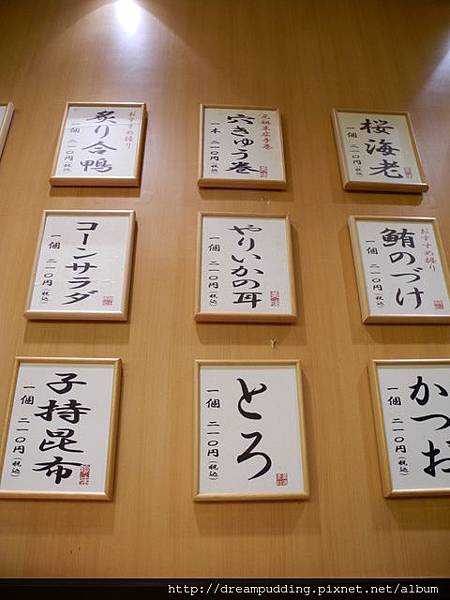 おすすめ握り
炙り合鴨
一個 二一〇円(税込)
穴きゅう巻
一本 二一〇円(税込)
桜海老
一個 二一〇円(税込)
コーンサラダ
一個 二一〇円(税込)
やりいかの耳
一個 二一〇円(税込)
おすすめ握り
鮪のづけ
一個 二一〇円(税込)
子持昆布
一個 二一〇円(税込)
とろ
一個 二一〇円(税込)
かつお
一個 二一〇円(税込)
http://dreampudding.pixnet.net/album